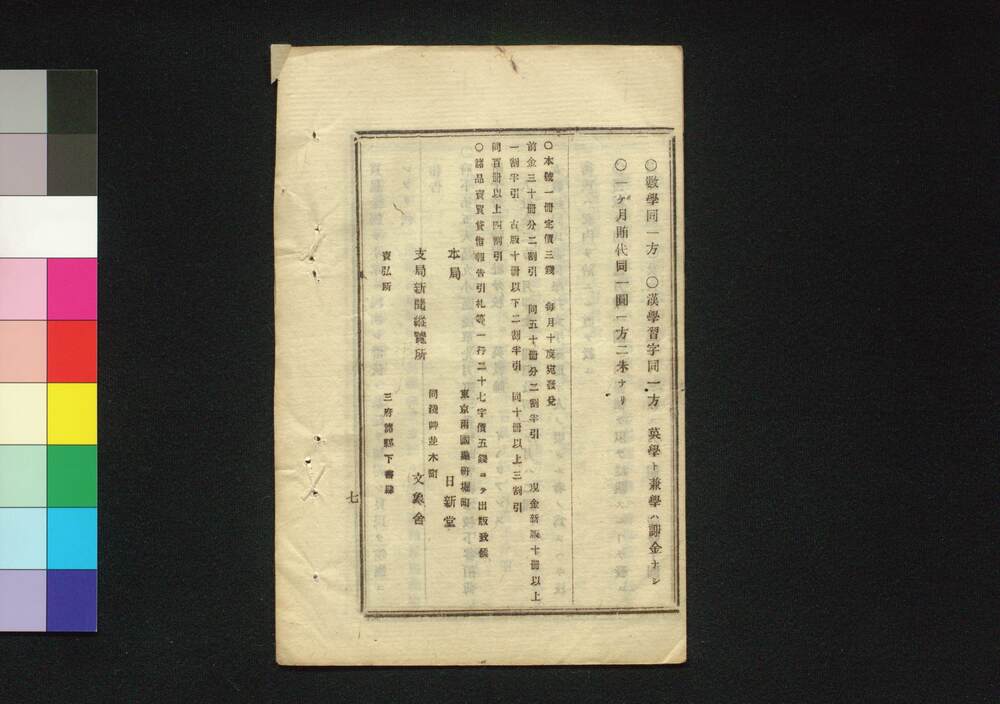 〇數學同一方　〇漢學習字同一方　英學ト兼學ハ謝金ナシ
〇一ケ月賄代同一圓一方二朱ナリ
〇本號一冊定價三錢　每月十度宛發兌
前金三十冊分二割引　同五十冊分二割半引　現金新版十冊以上
一割半引　古版十冊以下二割半引　同十冊以上三割引
同百冊以上四割引
〇諸品賣買貸借報告引札等一行二十七字價五錢ヨテ出版致候
本局　東京兩國藥研堀町　日新堂
支局新聞縱覽所　同淺艸並木町　文象舍
賣弘所　三府諸縣下書肆
七